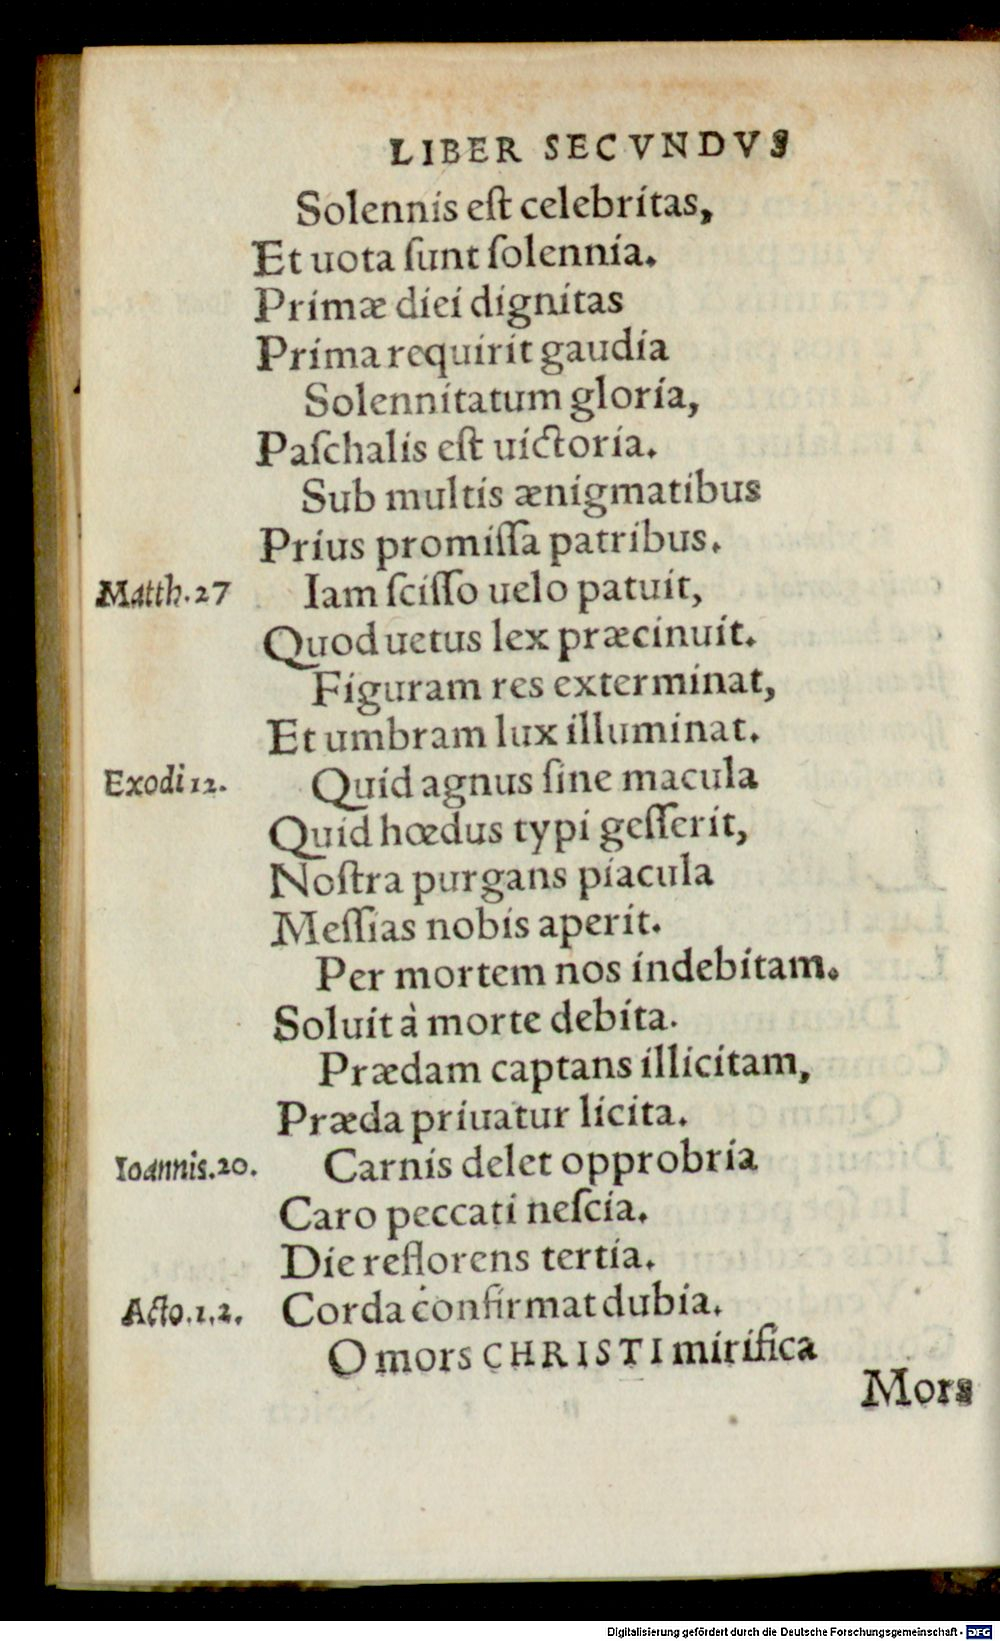 LIBER SECVNDVS
Solennis eſt celebritas,
Et uota ſunt ſolennia.
Primæ diei dignitas
Prima requirit gaudia
Solennitatum gloria,
Paſchalis eſt uictoria.
Sub multis ænigmatibus
Prius promiſſa patribus.
Matth.27 Iam ſciſſo uelo patuit,
Quod uetus lex præcinuit.
Figuram res exterminat,
Et umbram lux illuminat.
Exodi 12. Quid agnus ſine macula
Quid hœdus typi geſſerit,
Noſtra purgans piacula
Meſſias nobis aperit.
Per mortem nos indebitam.
Soluit à morte debita.
Prædam captans illicitam,
Præda priuatur licita.
Ioannis.20. Carnis delet opprobria
Caro peccati neſcia.
Die reflorens tertia.
Acto.1.2. Corda confirmat dubia.
O mors CHRISTI mirifica
Mors
Digitalisierung gefördert durch die Deutsche Forschungsgemeinschaft - DFG